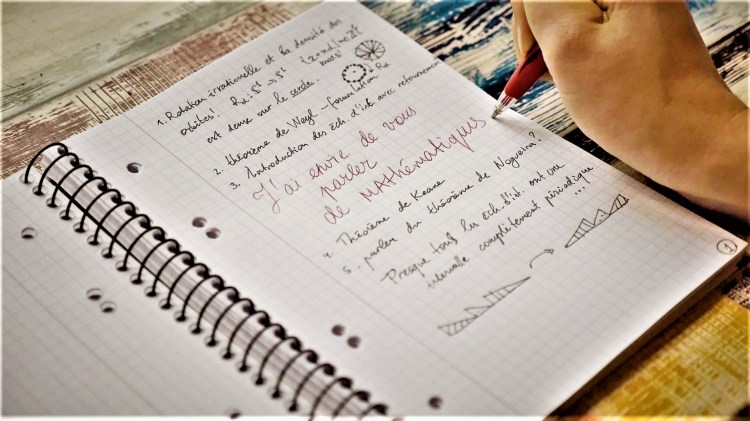 1. Rotation irrationnelle et la densité des
orbites! Rα: S¹ → S¹ {z+nα | n∈ℤ}
mod 1
est dense sur le cercle.
Rα
2. théorème de Weyl - formulation
3. Introduction des éch. d'it. avec retournement
J'ai envie de vous
parler
de MATHématiques
4. Théorème de Keane
5. parler du théorème de Nogueira?
Presque tous les éch d'it. ont une
intervalle complètement périodique
...!
1